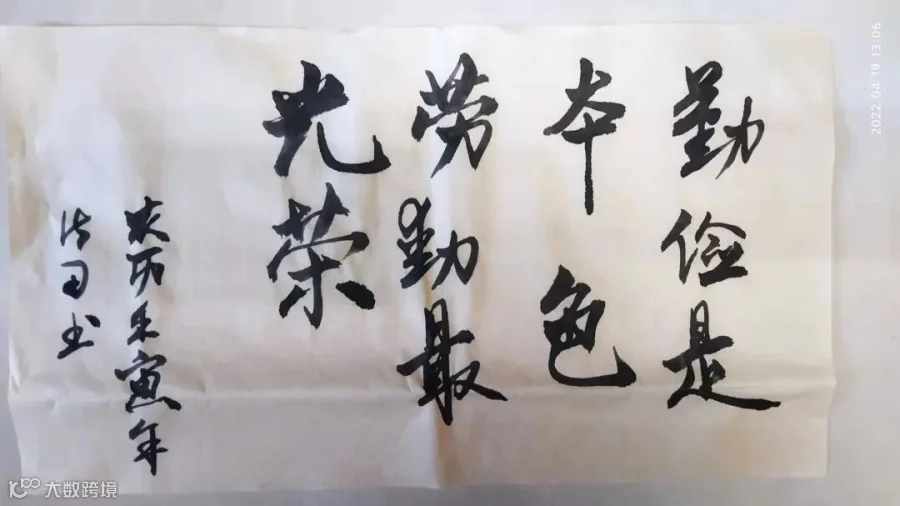 勤俭是
本色
劳勤最
光荣
农历壬寅年
法司书
2022.04.19 13:06
大数跨境